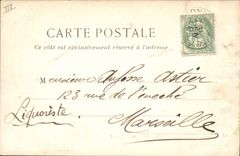 III
CARTE POSTALE
Ce côté est exclusivement réservé à l'adresse
Monsieur Alysse Astier
Liquoriste 123 rue de l'évêché
Marseille